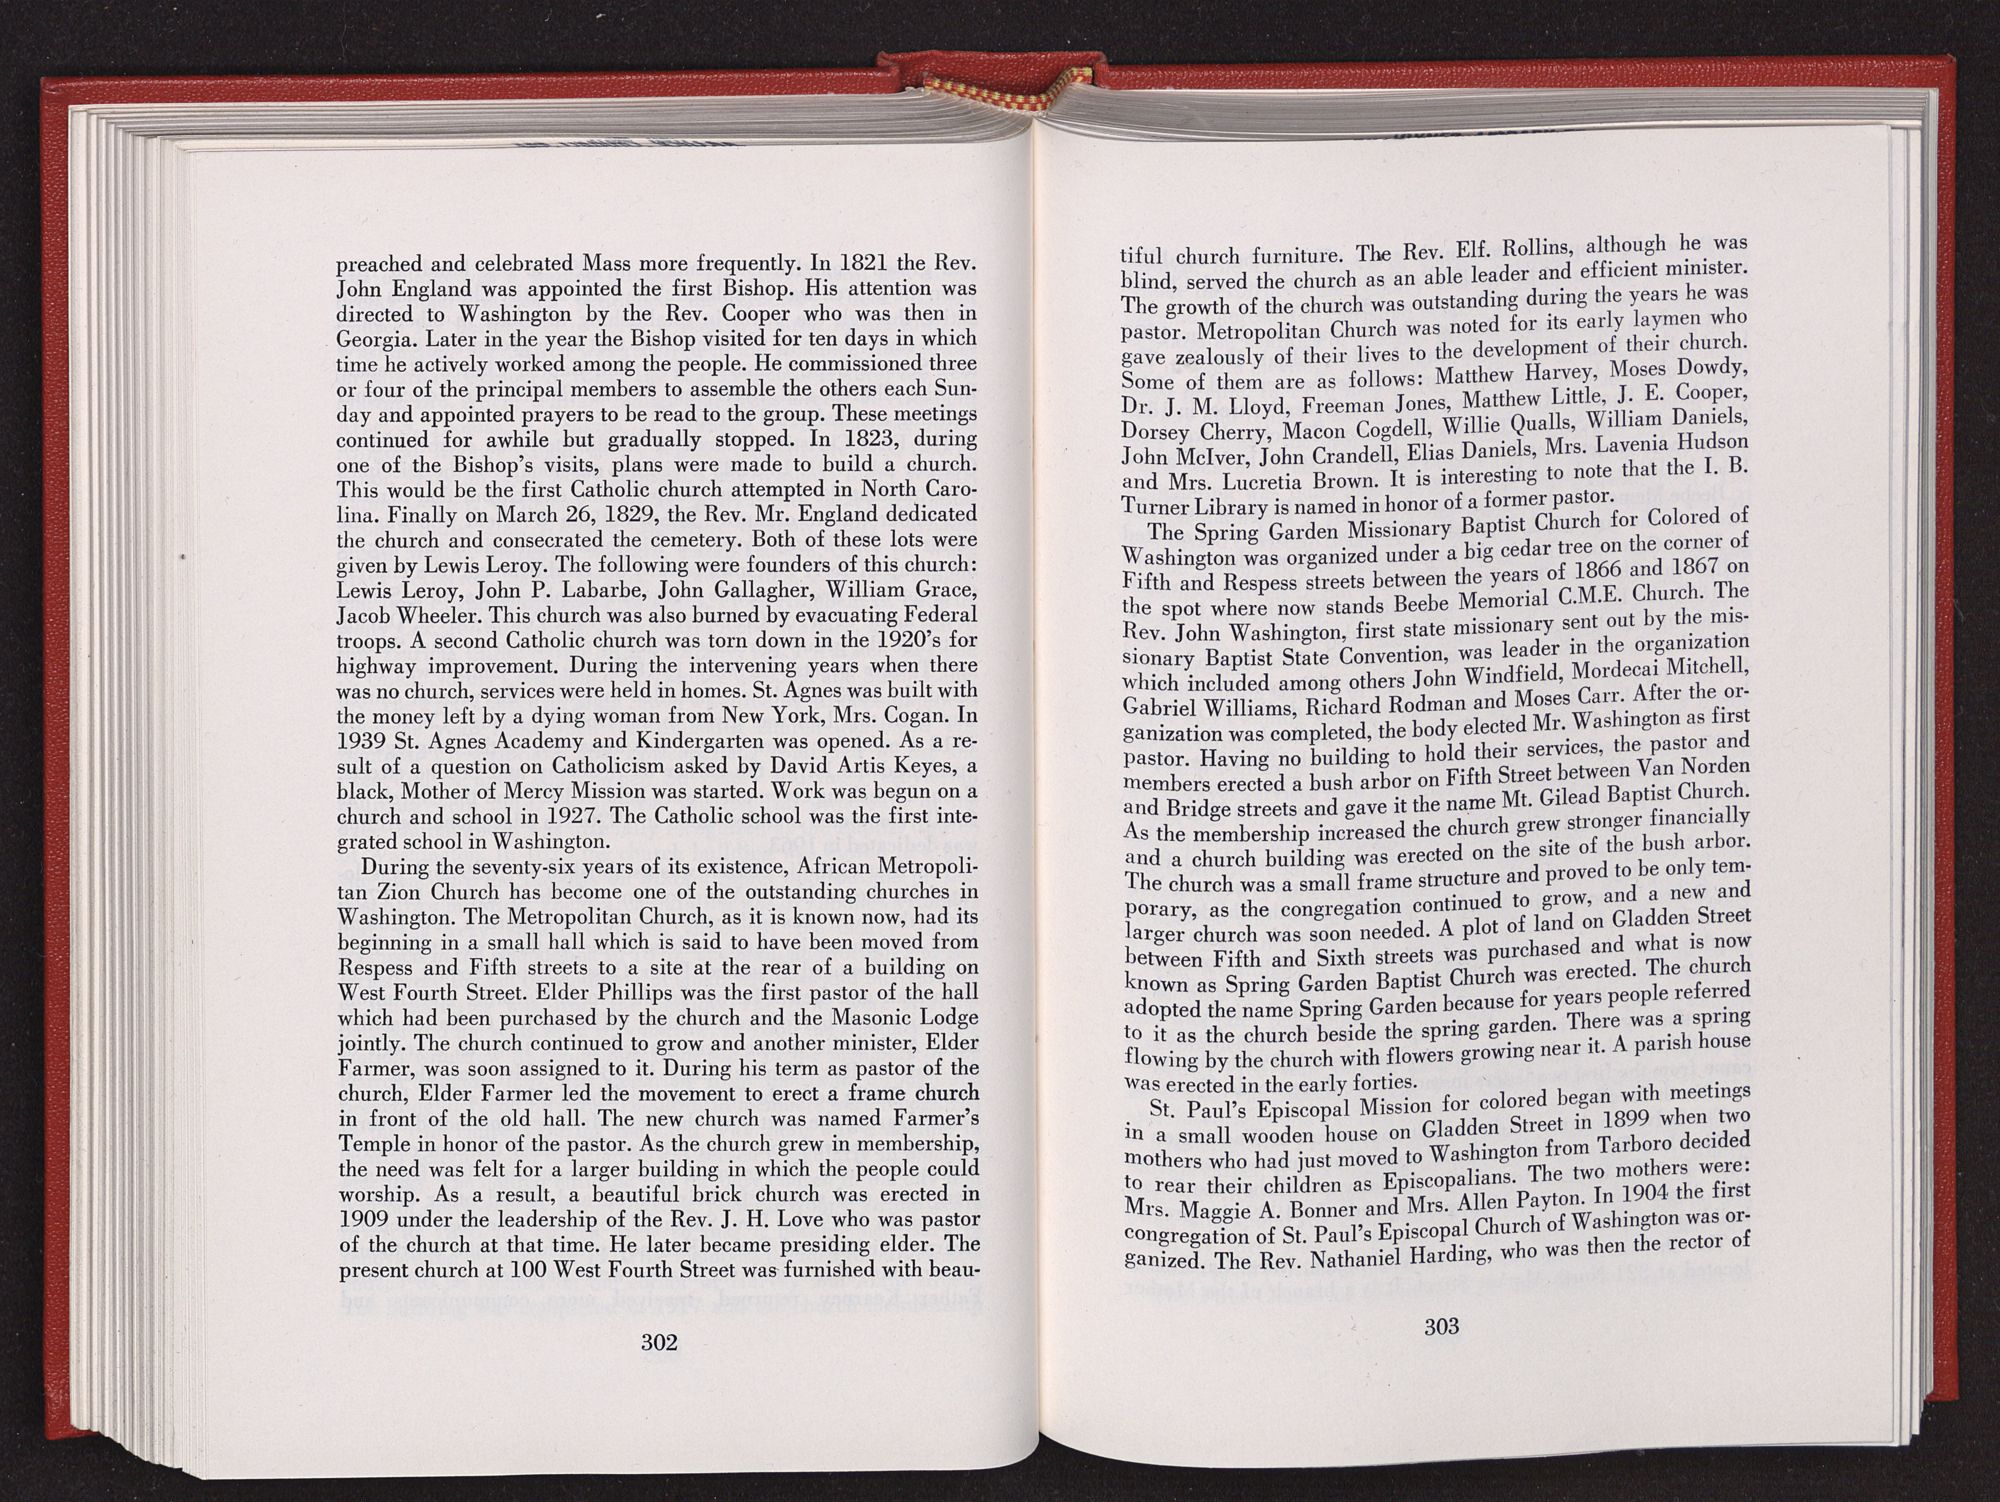 preached and celebrated Mass more frequently. In 1821 the Rev.
John England was appointed the first Bishop. His attention was
directed to Washington by the Rev. Cooper who was then in
Georgia. Later in the year the Bishop visited for ten days in which
time he actively worked among the people. He commissioned three
or four of the principal members to assemble the others each Sun-
day and appointed prayers to be read to the group. These meetings
continued for awhile but gradually stopped. In 1823, during
one of the Bishop's visits, plans were made to build a church.
This would be the first Catholic church attempted in North Caro-
lina. Finally on March 26, 1829, the Rev. Mr. England dedicated
the church and consecrated the cemetery. Both of these lots were
given by Lewis Leroy. The following were founders of this church:
Lewis Leroy, John P. Labarbe, John Gallagher, William Grace,
Jacob Wheeler. This church was also burned by evacuating Federal
troops. A second Catholic church was torn down in the 1920's for
highway improvement. During the intervening years when there
was no church, services were held in homes. St. Agnes was built with
the money left by a dying woman from New York, Mrs. Cogan. In
1939 St. Agnes Academy and Kindergarten was opened. As a re-
sult of a question on Catholicism asked by David Artis Keyes, a
black, Mother of Mercy Mission was started. Work was begun on a
church and school in 1927. The Catholic school was the first inte-
grated school in Washington.
During the seventy-six years of its existence, African Metropoli-
tan Zion Church has become one of the outstanding churches in
Washington. The Metropolitan Church, as it is known now, had its
beginning in a small hall which is said to have been moved from
Respess and Fifth streets to a site at the rear of a building on
West Fourth Street. Elder Phillips was the first pastor of the hall
which had been purchased by the church and the Masonic Lodge
jointly. The church continued to grow and another minister, Elder
Farmer, was soon assigned to it. During his term as pastor of the
church, Elder Farmer led the movement to erect a frame church
in front of the old hall. The new church was named Farmer's
Temple in honor of the pastor. As the church grew in membership,
the need was felt for a larger building in which the people could
worship. As a result, a beautiful brick church was erected in
1909 under the leadership of the Rev. J. H. Love who was pastor
of the church at that time. He later became presiding elder. The
present church at 100 West Fourth Street was furnished with beau-
302
tiful church furniture. The Rev. Elf. Rollins, although he was
blind, served the church as an able leader and efficient minister.
The growth of the church was outstanding during the years he was
pastor. Metropolitan Church was noted for its early laymen who
gave zealously of their lives to the development of their church.
Some of them are as follows: Matthew Harvey, Moses Dowdy,
Dr. J. M. Lloyd, Freeman Jones, Matthew Little, J. E. Cooper,
Dorsey Cherry, Macon Cogdell, Willie Qualls, William Daniels,
John McIver, John Crandell, Elias Daniels, Mrs. Lavenia Hudson
and Mrs. Lucretia Brown. It is interesting to note that the I. B.
Turner Library is named in honor of a former pastor.
The Spring Garden Missionary Baptist Church for Colored of
Washington was organized under a big cedar tree on the corner of
Fifth and Respess streets between the years of 1866 and 1867 on
the spot where now stands Beebe Memorial C.M.E. Church. The
Rev. John Washington, first state missionary sent out by the mis-
sionary Baptist State Convention, was leader in the organization
which included among others John Windfield, Mordecai Mitchell,
Gabriel Williams, Richard Rodman and Moses Carr. After the or-
ganization was completed, the body elected Mr. Washington as first
pastor. Having no building to hold their services, the pastor and
members erected a bush arbor on Fifth Street between Van Norden
and Bridge streets and gave it the name Mt. Gilead Baptist Church.
As the membership increased the church grew stronger financially
and a church building was erected on the site of the bush arbor.
The church was a small frame structure and proved to be only tem-
porary, as the congregation continued to grow, and a new and
larger church was soon needed. A plot of land on Gladden Street
between Fifth and Sixth streets was purchased and what is now
known as Spring Garden Baptist Church was erected. The church
adopted the name Spring Garden because for years people referred
to it as the church beside the spring garden. There was a spring
flowing by the church with flowers growing near it. A parish house
was erected in the early forties.
St. Paul's Episcopal Mission for colored began with meetings
in a small wooden house on Gladden Street in 1899 when two
mothers who had just moved to Washington from Tarboro decided
to rear their children as Episcopalians. The two mothers were:
Mrs. Maggie A. Bonner and Mrs. Allen Payton. In 1904 the first
congregation of St. Paul's Episcopal Church of Washington was or-
ganized. The Rev. Nathaniel Harding, who was then the rector of
303